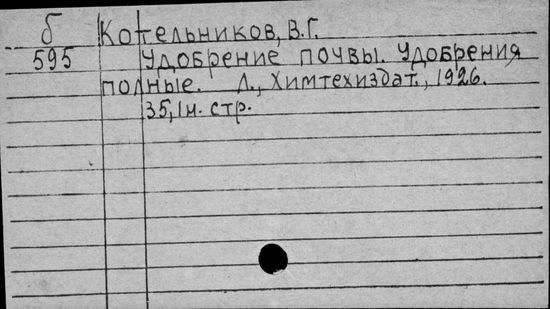 б Котельников, В.Г.
595 Удобрение почвы. Удобрения
полные. Л., Химтехиздат., 1926.
35, 1 н. стр.